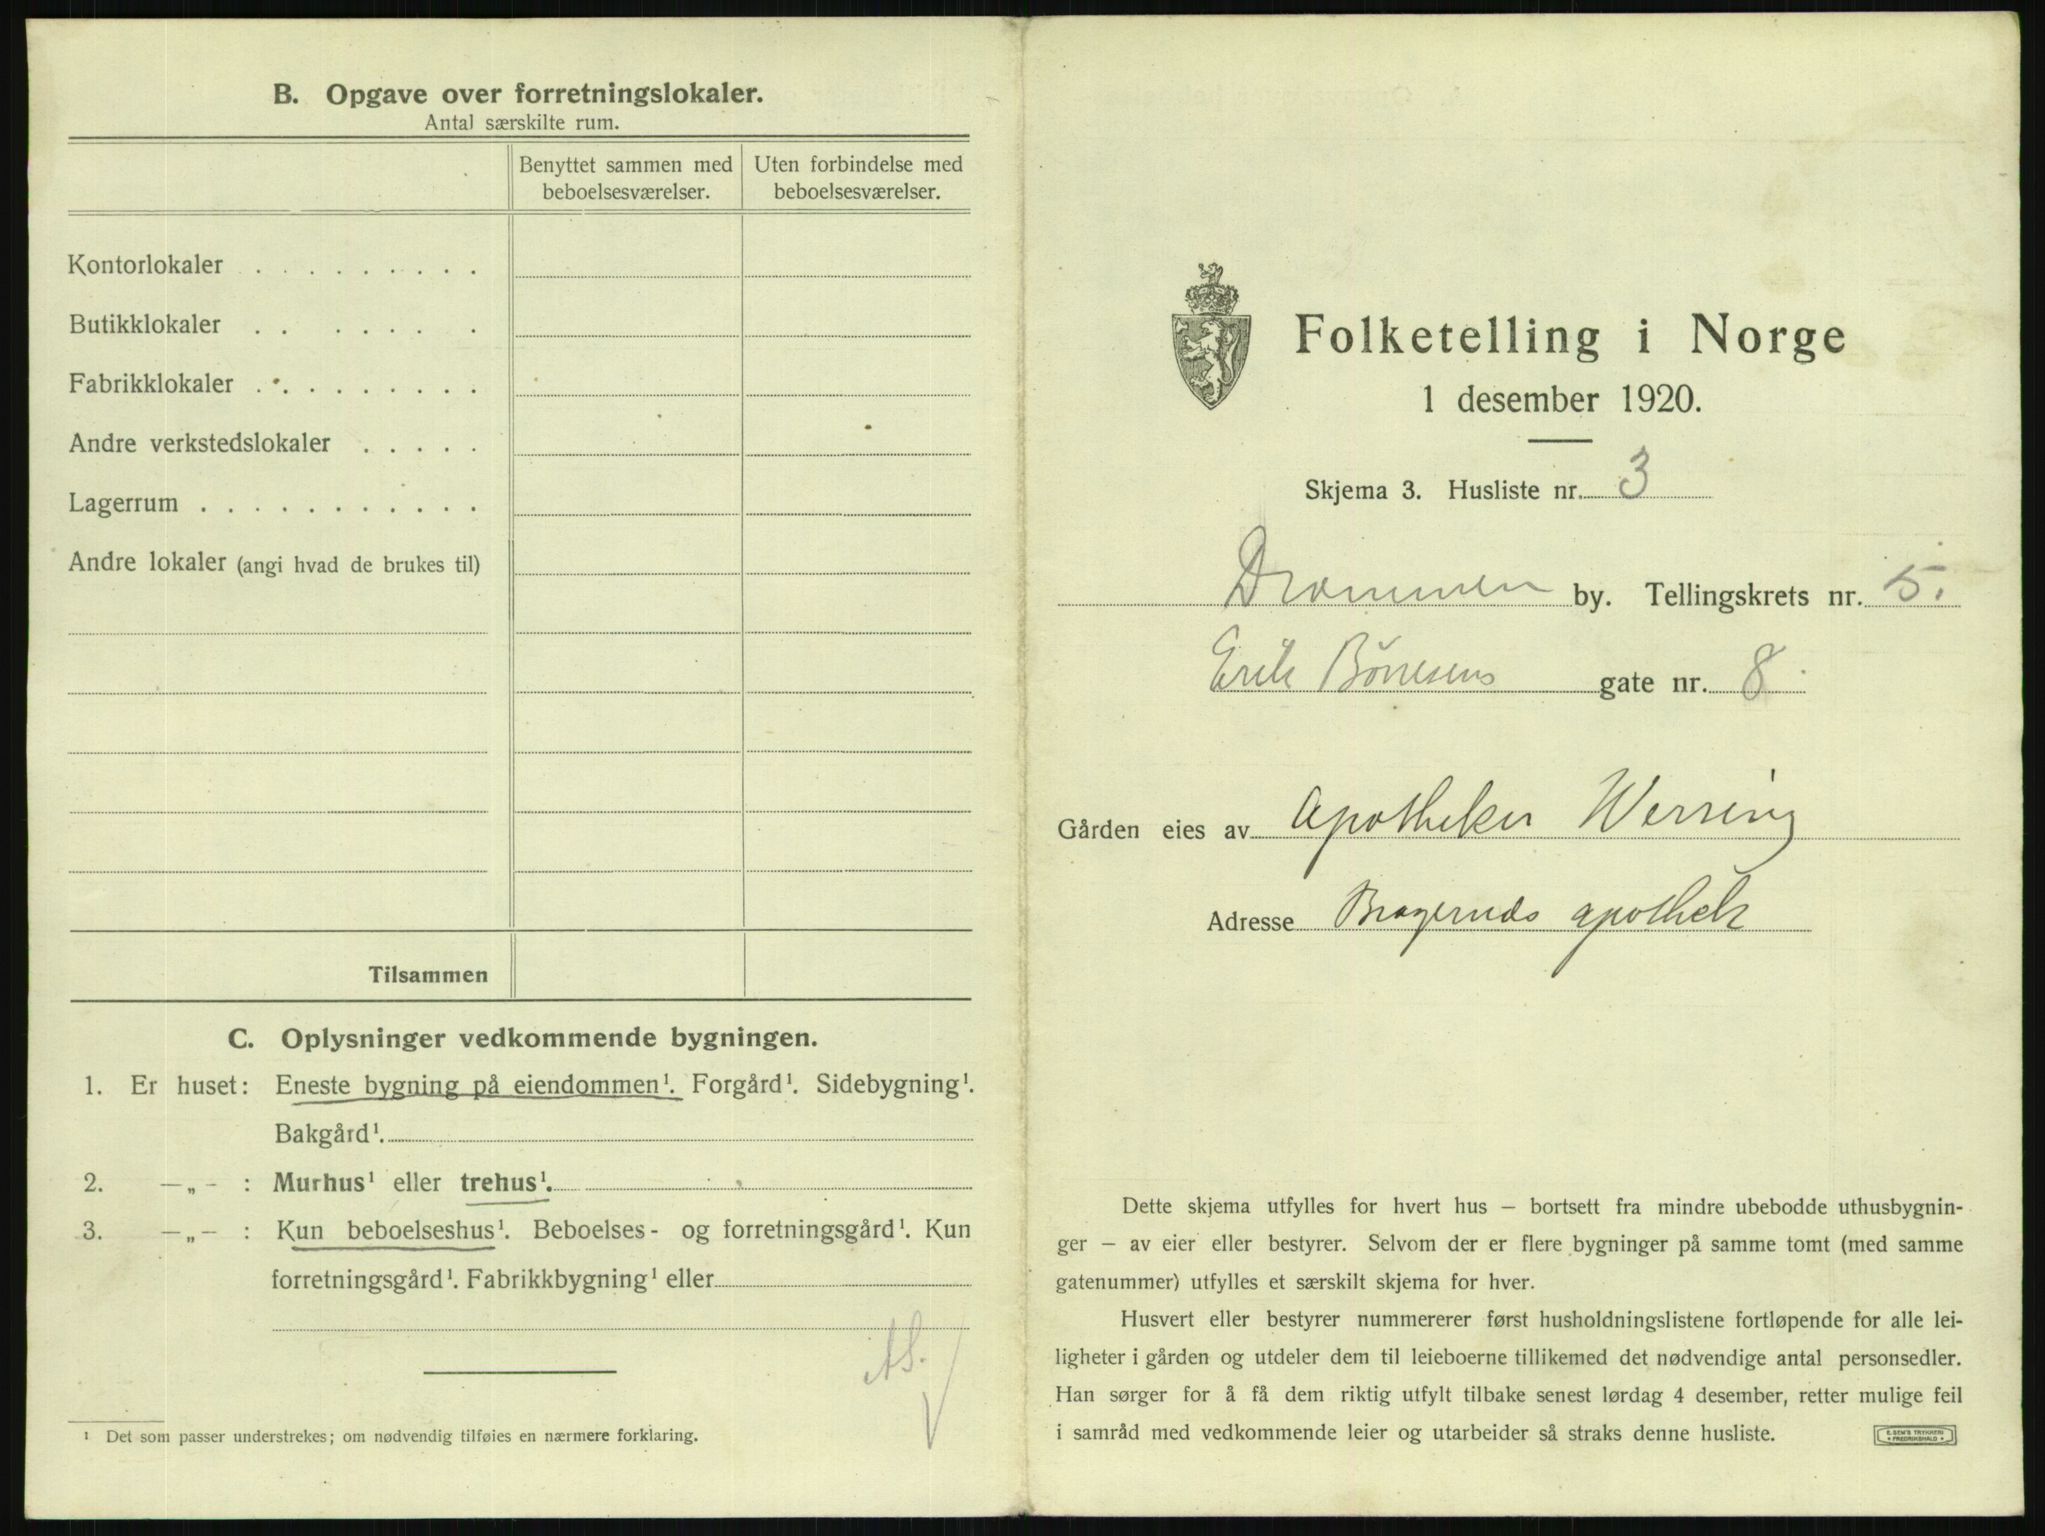 B. Opgave over forretningslokaler.
Antal særskilte rum.
Benyttet sammen med beboelsesværelser.
Uten forbindelse med beboelsesværelser.
Kontorlokaler . . . . . . . . .
Butikklokaler . . . . . . .
Fabrikklokaler . . . . . . . . .
Andre verkstedslokaler . . . . .
Lagerrum . . . . . . . . . . .
Andre lokaler (angi hvad de brukes til)
Tilsammen
C. Oplysninger vedkommende bygningen.
1. Er huset: Eneste bygning på eiendommen¹. Forgård¹. Sidebygning¹.
Bakgård¹.
2. —„- : Murhus¹ eller trehus¹.
3. —„— : Kun beboelseshus¹. Beboelses- og forretningsgård¹. Kun
forretningsgård¹. Fabrikkbygning¹ eller
AS.
¹ Det som passer understrekes; om nødvendig tilføies en nærmere forklaring.
Folketelling i Norge
1 desember 1920.
Skjema 3. Husliste nr. 3
Drammen by. Tellingskrets nr. 5.
Erik Børresens gate nr. 8
Gården eies av Apotheker Werring
Adresse Bragernes apothek
Dette skjema utfylles for hvert hus — bortsett fra mindre ubebodde uthusbygnin-
ger — av eier eller bestyrer. Selvom der er flere bygninger på samme tomt (med samme
gatenummer) utfylles et særskilt skjema for hver.
Husvert eller bestyrer nummererer først husholdningslistene fortløpende for alle lei-
ligheter i gården og utdeler dem til leieboerne tillikemed det nødvendige antal personsedler.
Han sørger for å få dem riktig utfylt tilbake senest lørdag 4 desember, retter mulige feil
i samråd med vedkommende leier og utarbeider så straks denne husliste.
E. SEM'S TRYKKERI
FREDRIKSHALD